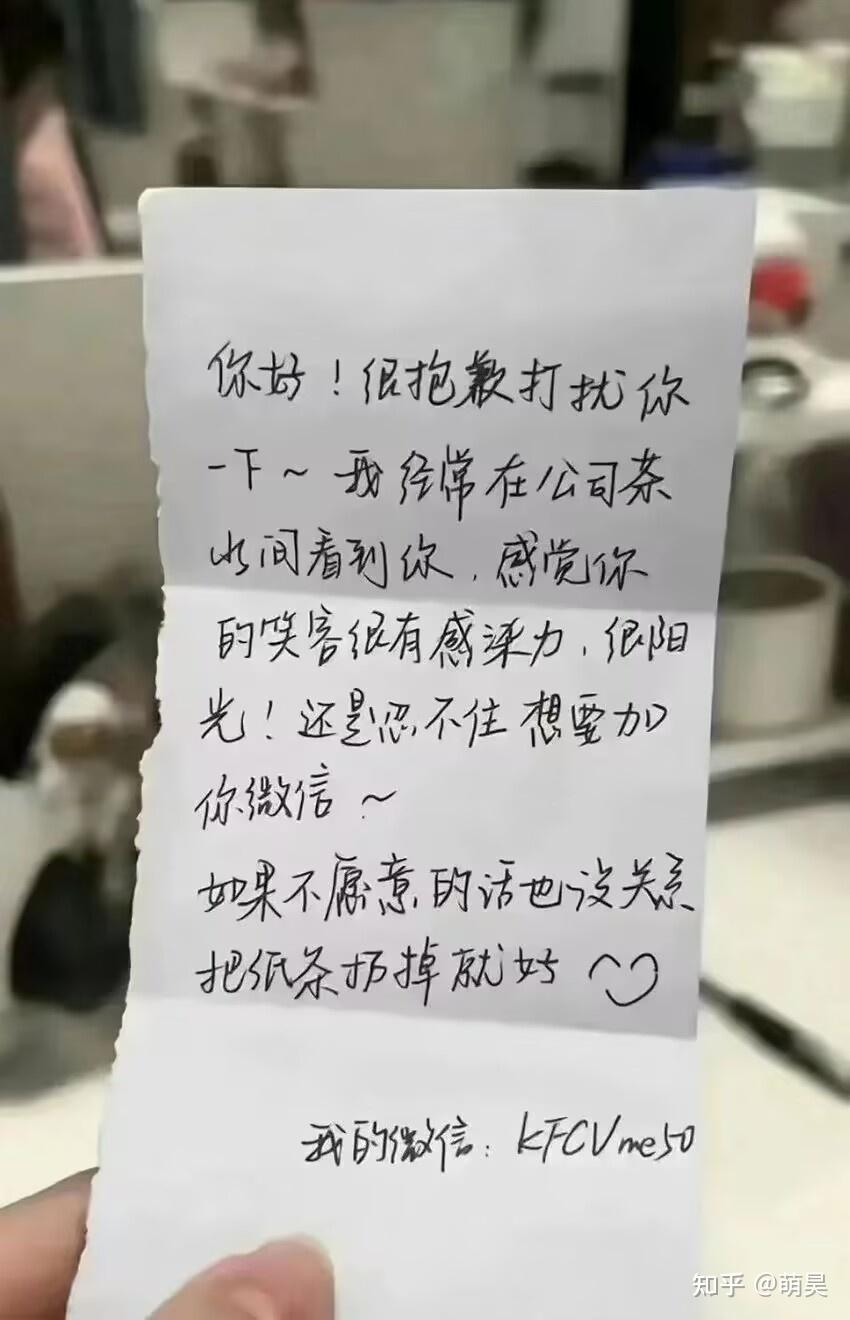 你好！很抱歉打扰你
一下～我经常在公司茶
水间看到你，感觉你
的笑容很有感染力，很阳
光！还是忍不住想要加
你微信～
如果不愿意的话也没关系
把纸条扔掉就好
我的微信：KFCVme50
知乎 @萌昊